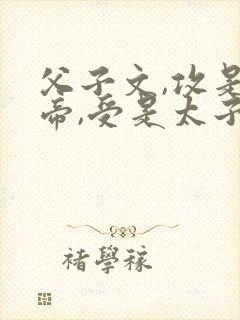 父子文,攻是
帝,受是太子
褚學稼